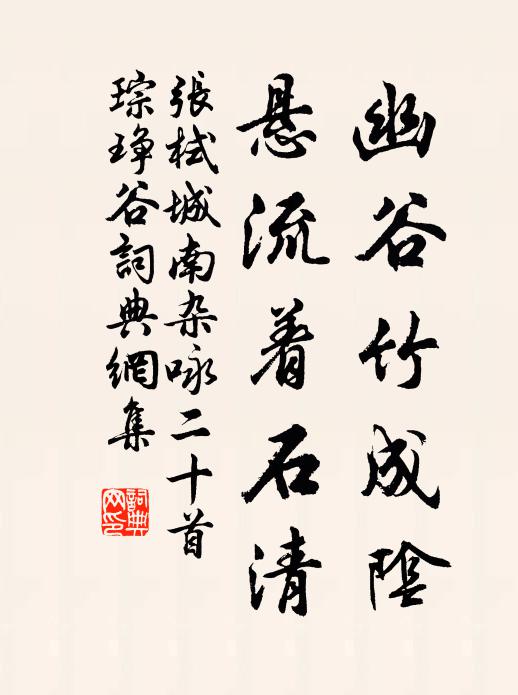 幽谷竹成陰
悬流着石清
張栻城南杂咏二十首
琮琤谷詞典網集
詞典网印